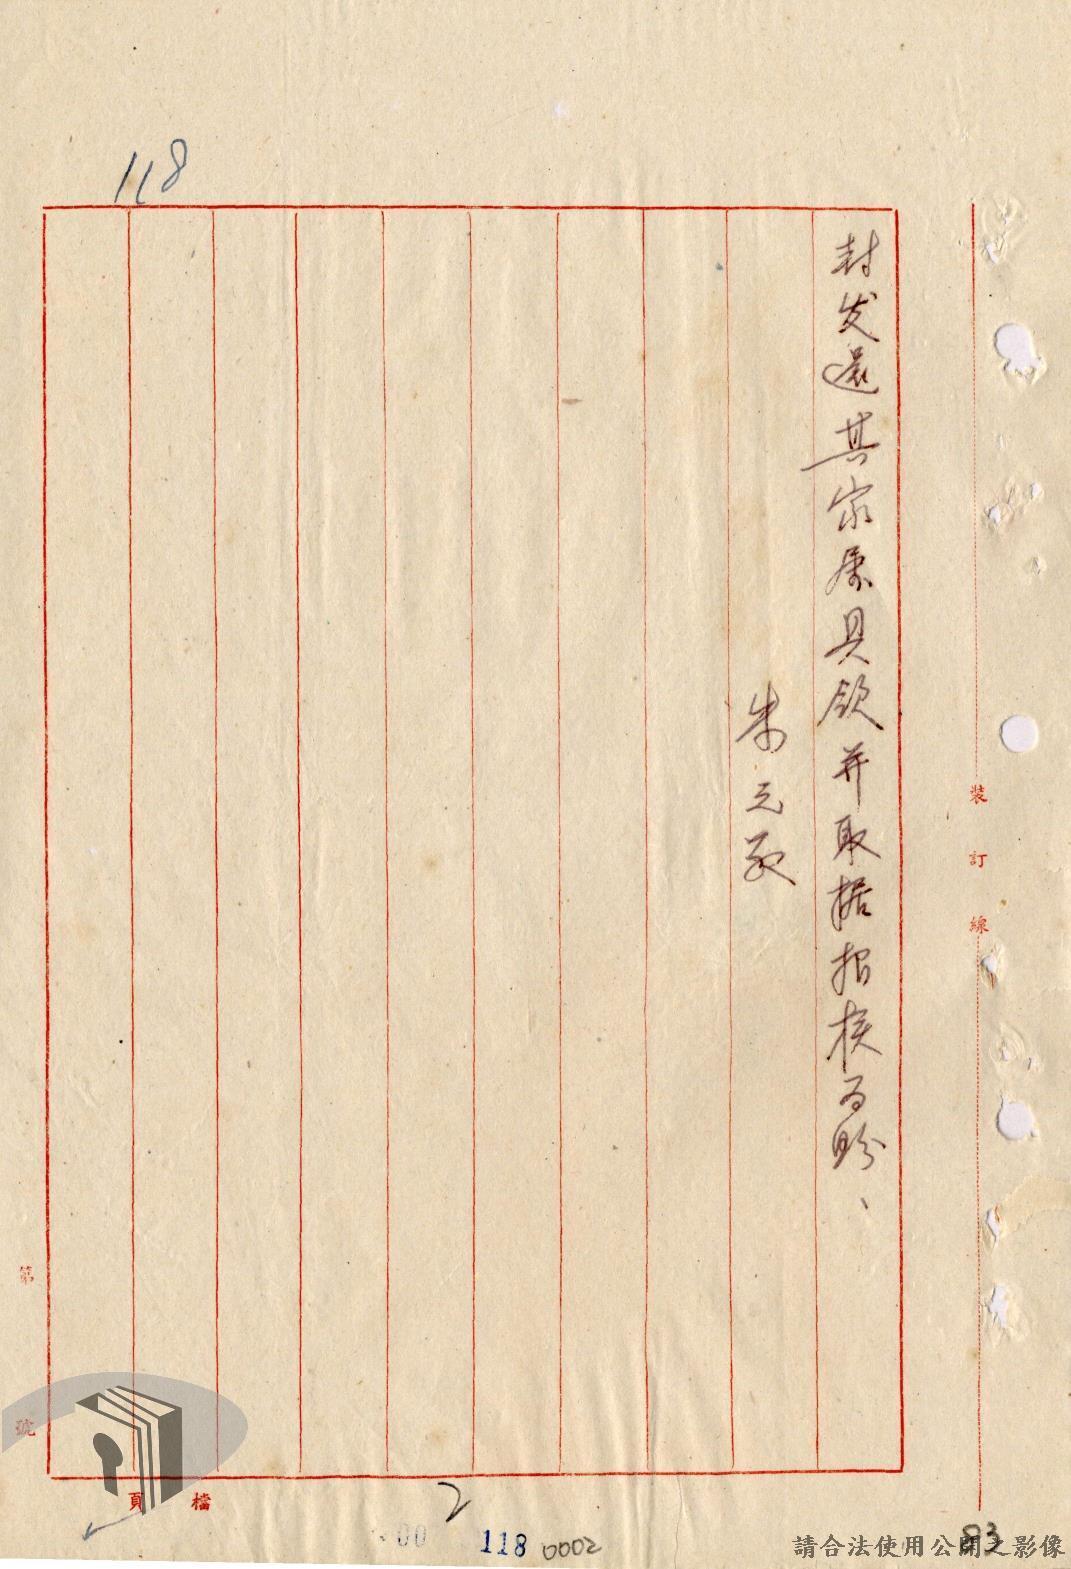 118
封发還其家属具領并取据报核为盼、
朱元
装訂線
第
號
檔
頁
2
00
118
0002
83
請合法使用公開之影像